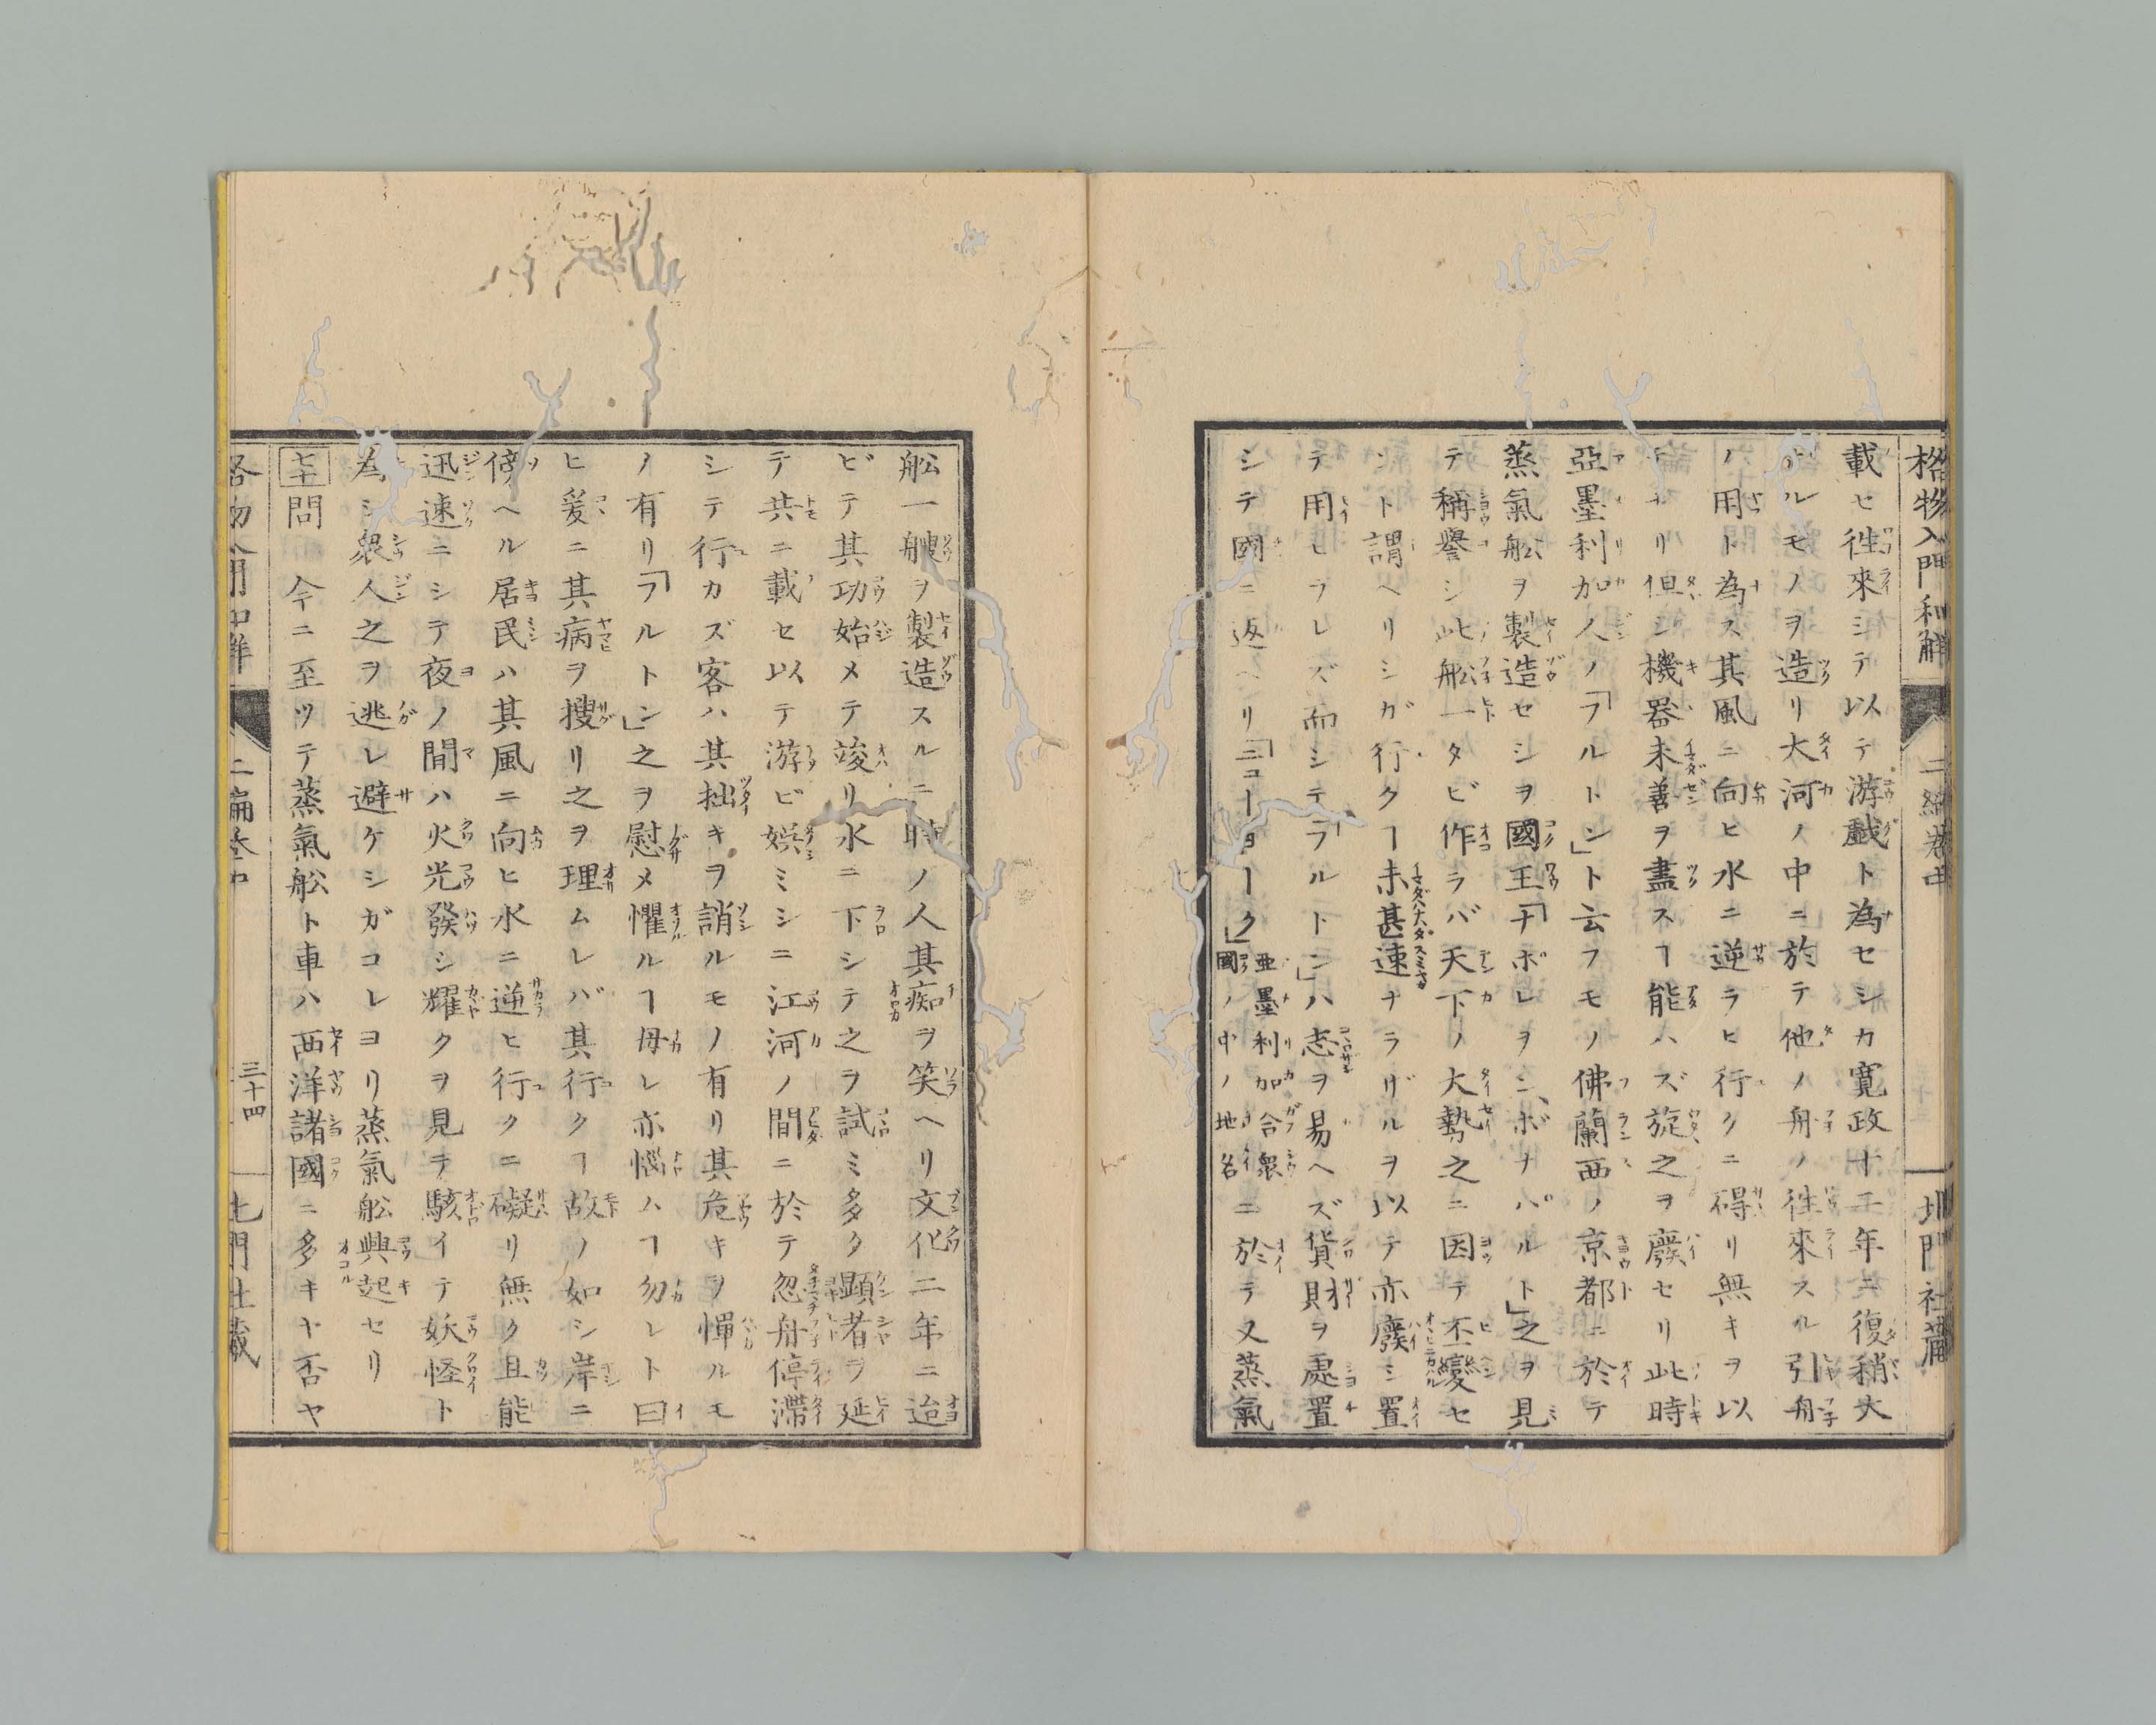 格物入門和解 二編巻中 北門社蔵
載セ徃來シテ以テ游戯ト為セシカ寛政十二年ニ復稍大
ルモノヲ造リ大河ノ中ニ於テ他ノ舟ノ徃來スル引舟
ノ用ト為ス其風ニ向ヒ水ニ逆ラヒ行クニ碍リ無キヲ以
テナリ但シ機器未善ヲ盡スヿ能ハズ旋之ヲ廢セリ此時
亞墨利加人ノ「フルトン」ト云フモノ佛蘭西ノ京都ニ於テ
蒸氣舩ヲ製造セシヲ國王「ナポレヲン、ボナパルト」之ヲ見
テ稱譽シ此舩一タビ作ラバ天下ノ大勢之ニ因テ丕變セ
ント謂ヘリシガ行クヿ未甚速ナラザルヲ以テ亦廢シ置
テ用ヒラレズ而シテ「フルトン」ハ志ヲ易ヘズ貨財ヲ處置
シテ國ニ返ヘリ「ニューヨーク」亞墨利加合衆國ノ中ノ地名ニ於テ又蒸氣
舩一艘ヲ製造スルニ時ノ人其痴ヲ笑ヘリ文化二年ニ迨
ビテ其功始メテ竣リ水ニ下シテ之ヲ試ミ多ク顕者ヲ延
テ共ニ載セ以テ游ビ娯ミシニ江河ノ間ニ於テ忽舟停滞
シテ行カズ客ハ其拙キヲ誚ルモノ有リ其危キヲ憚ルモ
ノ有リ「フルトン」之ヲ慰メ懼ルヿ毋レ亦惱ハヿ勿レト曰
ヒ爰ニ其病ヲ搜リ之ヲ理ムレバ其行クヿ故ノ如シ岸ニ
傍ヘル居民ハ其風ニ向ヒ水ニ逆ヒ行クニ礙リ無ク且能
迅速ニシテ夜ノ間ハ火光發シ耀クヲ見テ駭イテ妖怪ト
為シ衆人之ヲ逃レ避ケシガコレヨリ蒸氣舩興起セリ
七十問 今ニ至ツテ蒸氣舩ト車ハ西洋諸國ニ多キヤ否ヤ
格物入門和解 二編巻中 三十四 北門社蔵